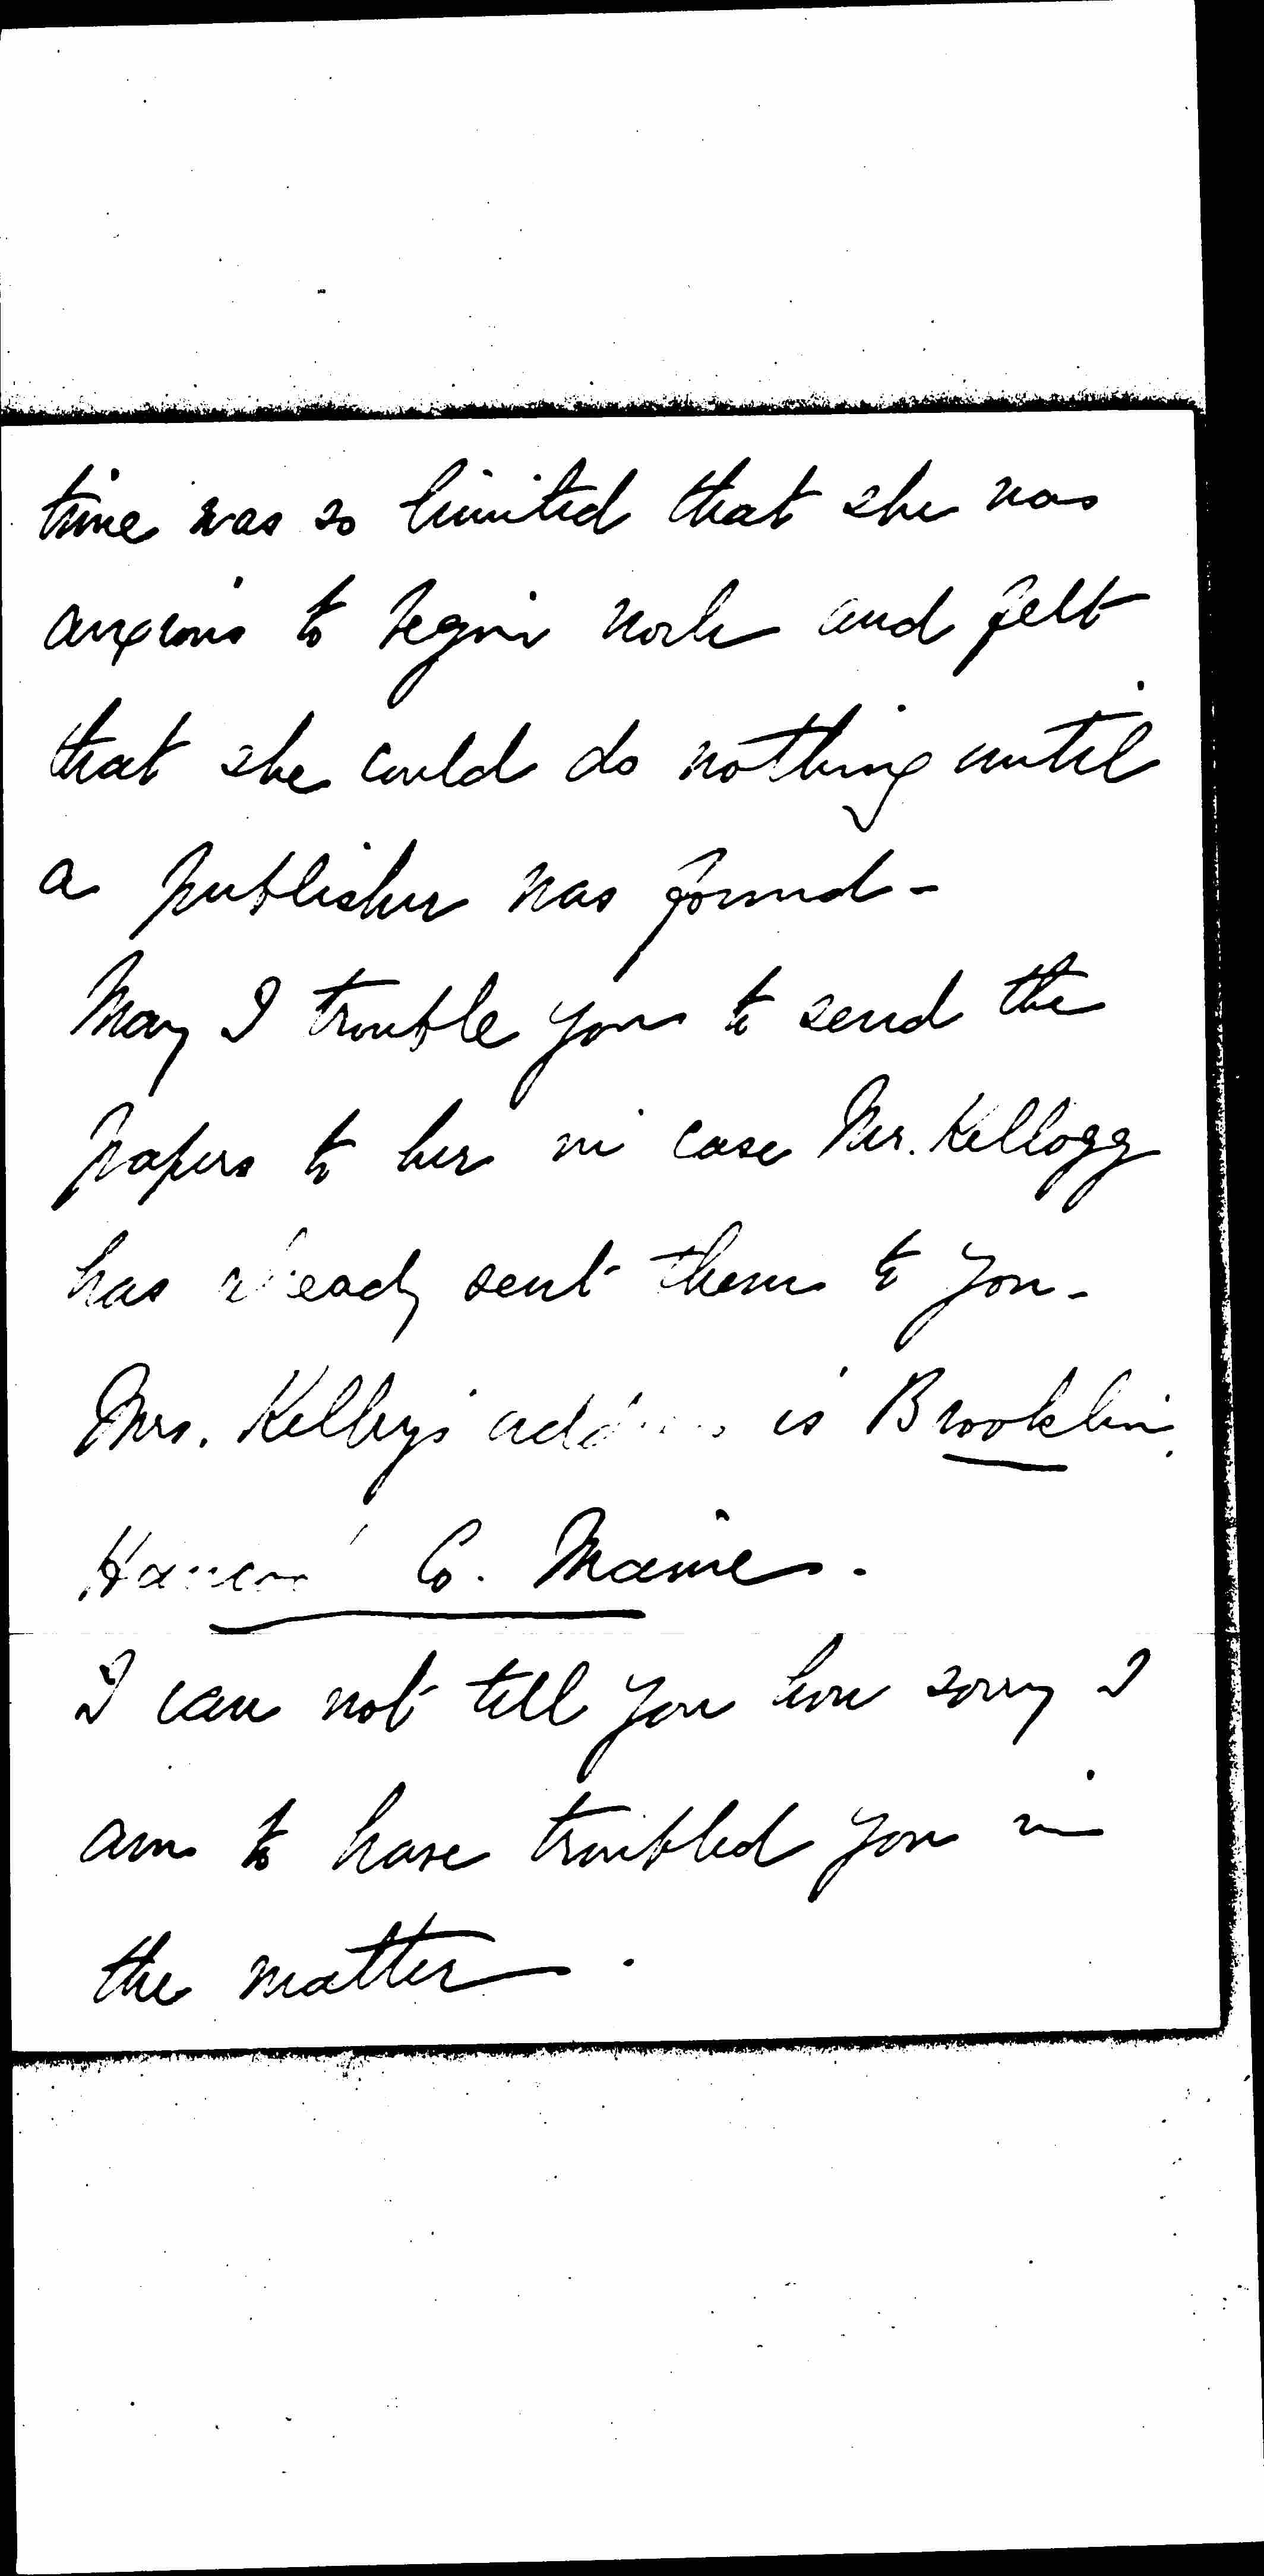 time was so limited that she was
anxious to begin work and felt
that she could do nothing until
a publisher was found -
May I trouble you to send the
papers to her in case Mr. Kellogg
has already sent them to you -
Mrs. address is Brooklin,
Hancock Co. Maine.
I can not tell you how sorry I
am to have troubled you in
the matter.